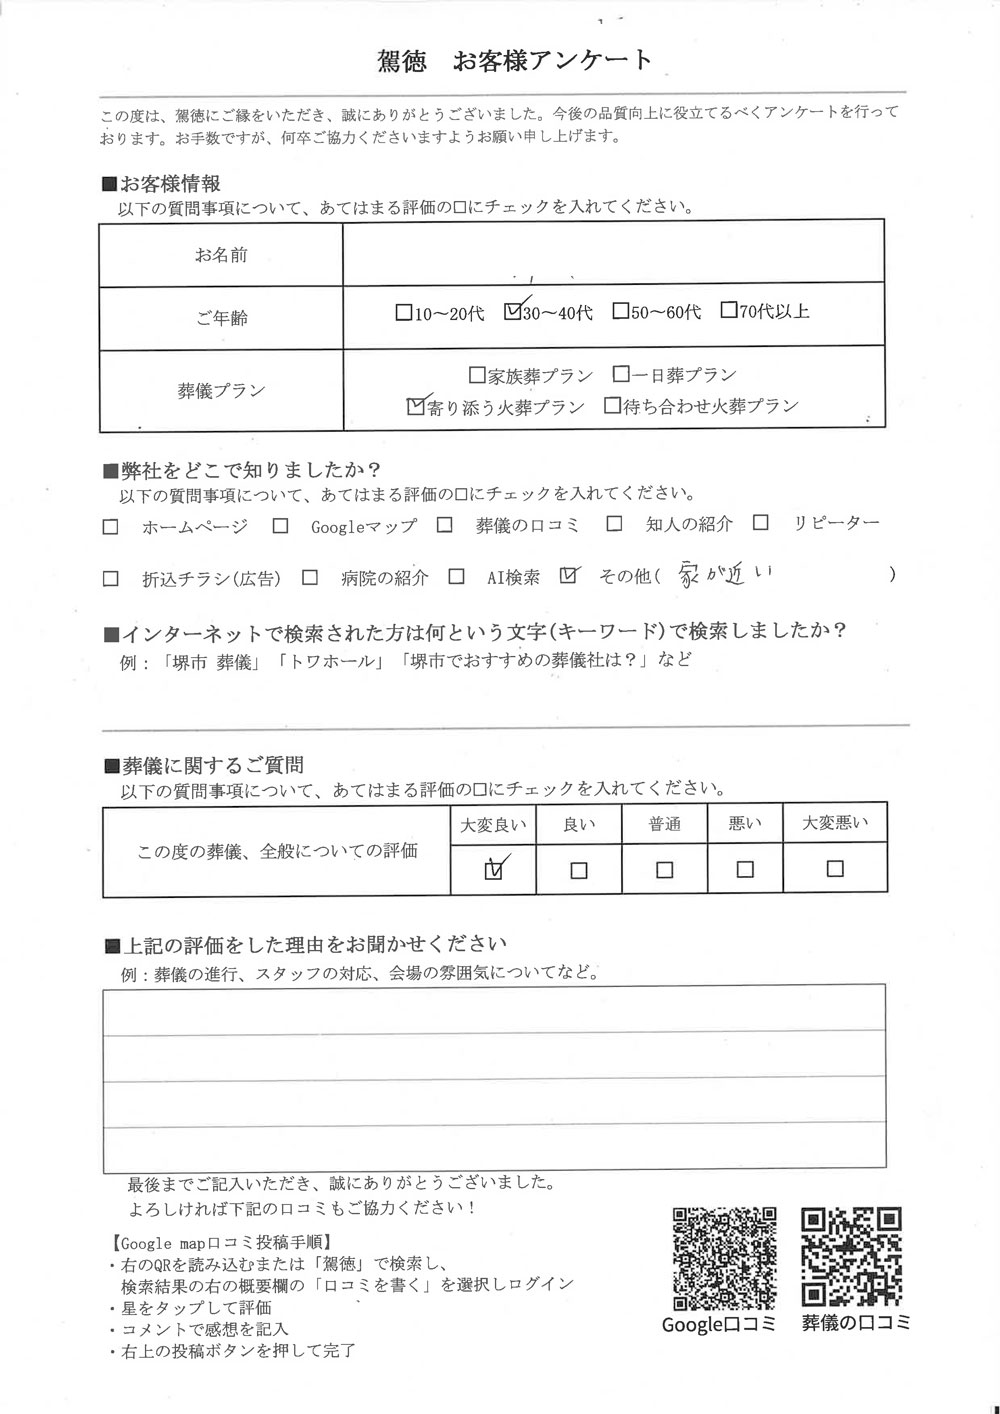 駕徳　お客様アンケート
この度は、駕徳にご縁をいただき、誠にありがとうございました。今後の品質向上に役立てるべくアンケートを行って
おります。お手数ですが、何卒ご協力くださいますようお願い申し上げます。
■お客様情報
以下の質問事項について、あてはまる評価の□にチェックを入れてください。
お名前
ご年齢
□10～20代　☑30～40代　□50～60代　□70代以上
葬儀プラン
□家族葬プラン　□一日葬プラン
☑寄り添う火葬プラン　□待ち合わせ火葬プラン
■弊社をどこで知りましたか？
以下の質問事項について、あてはまる評価の□にチェックを入れてください。
□　ホームページ　□　Googleマップ　□　葬儀の口コミ　□　知人の紹介　□　リピーター
□　折込チラシ(広告)　□　病院の紹介　□　AI検索　☑　その他(　家が近い　)
■インターネットで検索された方は何という文字(キーワード)で検索しましたか？
例：「堺市 葬儀」「トワホール」「堺市でおすすめの葬儀社は？」など
■葬儀に関するご質問
以下の質問事項について、あてはまる評価の□にチェックを入れてください。
大変良い　良い　普通　悪い　大変悪い
この度の葬儀、全般についての評価
☑　□　□　□　□
■上記の評価をした理由をお聞かせください
例：葬儀の進行、スタッフの対応、会場の雰囲気についてなど。
最後までご記入いただき、誠にありがとうございました。
よろしければ下記の口コミもご協力ください！
【Google map口コミ投稿手順】
・右のQRを読み込むまたは「駕徳」で検索し、
検索結果の右の概要欄の「口コミを書く」を選択しログイン
・星をタップして評価
・コメントで感想を記入
・右上の投稿ボタンを押して完了
Google口コミ　葬儀の口コミ